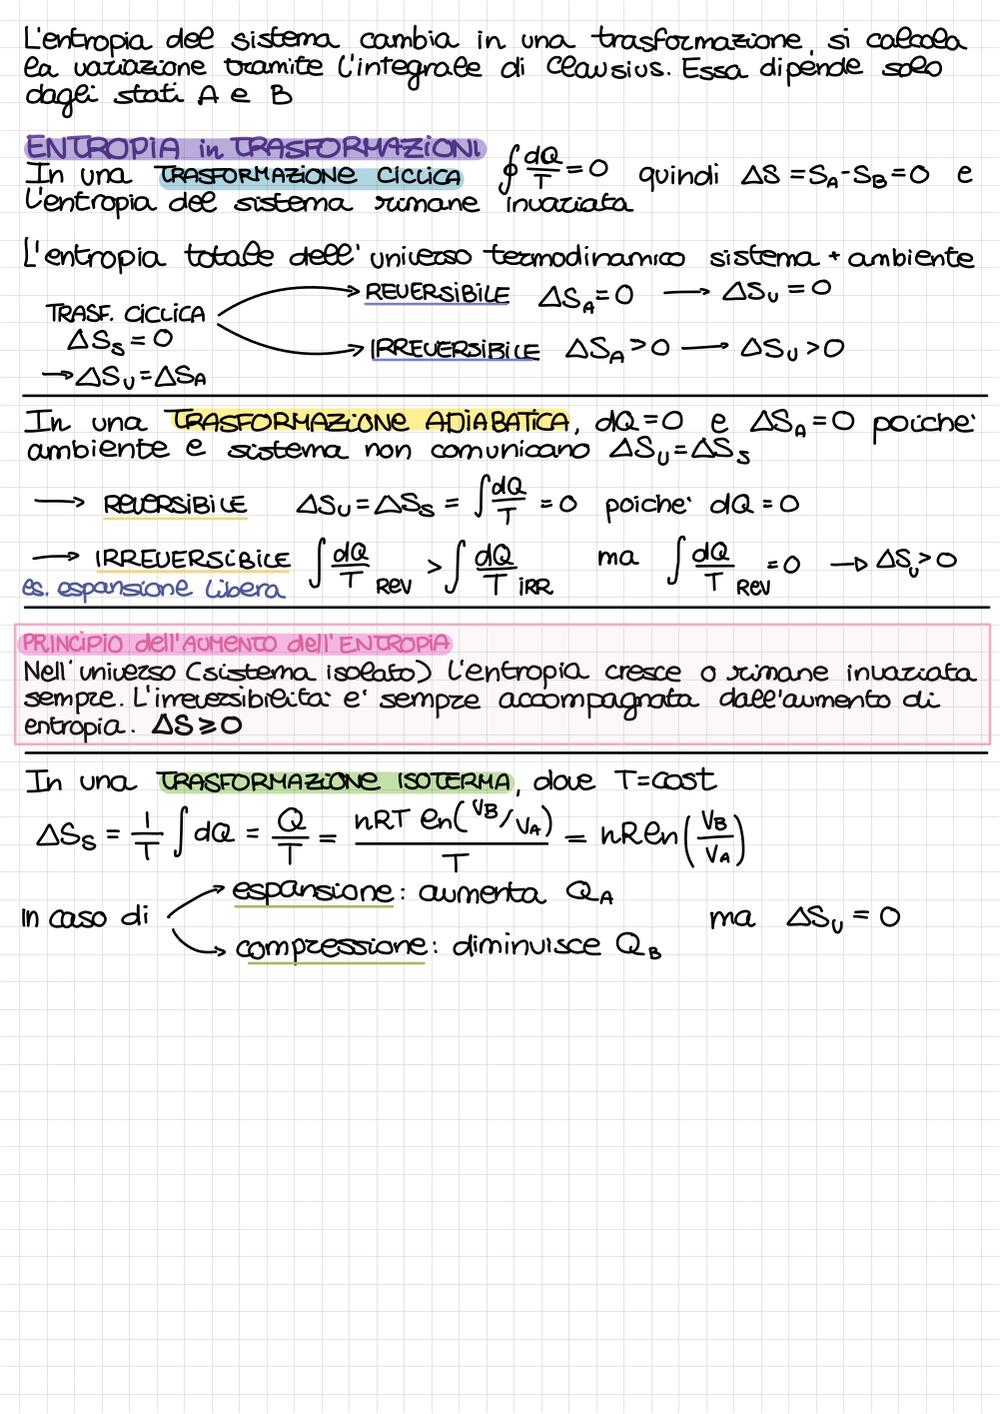 L'entropia del sistema cambia in una trasformazione, si calcola
la variazione tramite l'integrale di Clausius. Essa dipende solo
dagli stati A e B
ENTROPIA in TRASFORMAZIONI
In una TRASFORMAZIONE CICLICA ∮ dQ/T = 0 quindi ΔS = S_A - S_B = 0 e
l'entropia del sistema rimane invariata
L'entropia totale dell'universo termodinamico sistema + ambiente
TRASF. CICLICA
ΔS_S = 0
→ ΔS_U = ΔS_A
REVERSIBILE ΔS_A = 0 → ΔS_U = 0
IRREVERSIBILE ΔS_A > 0 → ΔS_U > 0
In una TRASFORMAZIONE ADIABATICA, dQ = 0 e ΔS_A = 0 poiche'
ambiente e sistema non comunicano ΔS_U = ΔS_S
→ REVERSIBILE ΔS_U = ΔS_S = ∫ dQ/T = 0 poiche' dQ = 0
→ IRREVERSIBILE ∫ dQ/T REV > ∫ dQ/T IRR ma ∫ dQ/T REV = 0 → ΔS_U > 0
es. espansione libera
PRINCIPIO dell'AUMENTO dell'ENTROPIA
Nell'universo (sistema isolato) l'entropia cresce o rimane invariata
sempre. L'irreversibilita' e' sempre accompagnata dall'aumento di
entropia. ΔS ≥ 0
In una TRASFORMAZIONE ISOTERMA, dove T = cost
ΔS_S = 1/T ∫ dQ = Q/T = nRT ln(V_B/V_A)/T = nR ln(V_B/V_A)
In caso di
espansione: aumenta Q_A
compressione: diminuisce Q_B
ma ΔS_U = 0